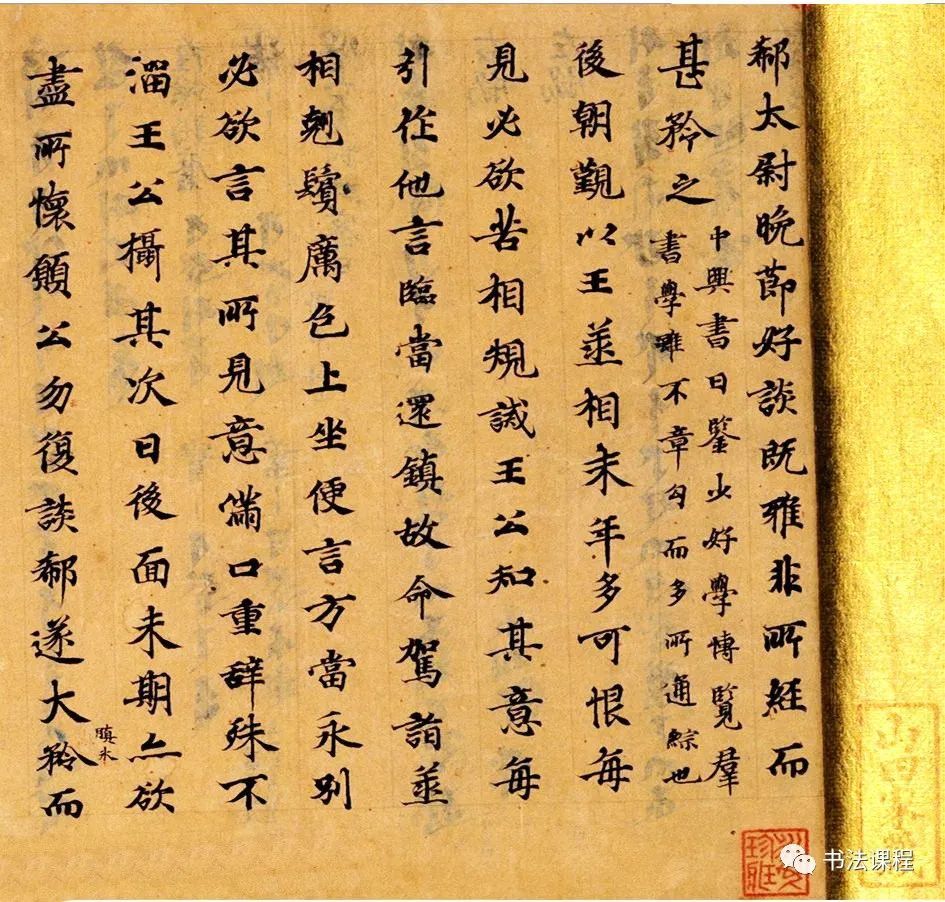 郗太尉晚節好談既雅非所經而
甚矜之
中興書曰鑒少好學博覽羣
書學雖不章句而多所通綜也
後朝覲以王丞相末年多可恨每
見必欲苦相規誡王公知其意每
引作他言臨當還鎮故命駕詣丞
相剋鬚厲色上坐便言方當永別
必欲言其所見意滿口重辭殊不
溜王公攝其次曰後面未期亦欲
盡所懷願公勿復談郗遂大矜而
瞋氷
书法课程